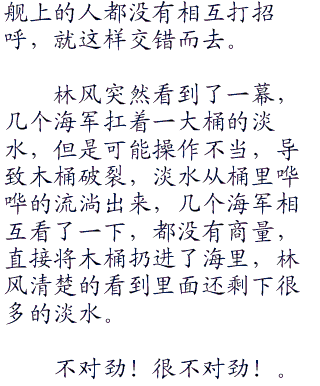 舰上的人都没有相互打招
呼，就这样交错而去。
林风突然看到了一幕，
几个海军扛着一大桶的淡
水，但是可能操作不当，导
致木桶破裂，淡水从桶里哗
哗的流淌出来，几个海军相
互看了一下，都没有商量，
直接将木桶扔进了海里，林
风清楚的看到里面还剩下很
多的淡水。
不对劲！很不对劲！。